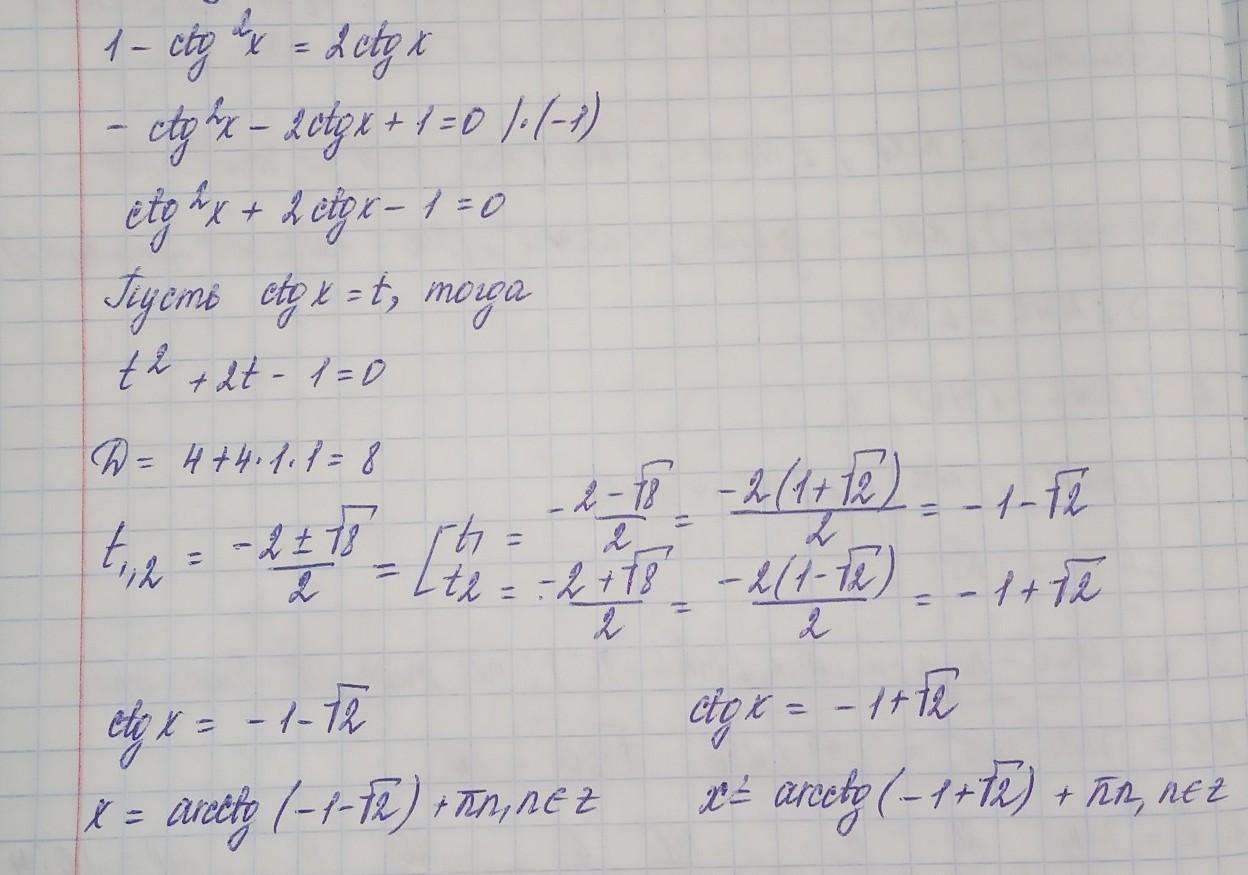 1 - ctg²x = 2ctgx
- ctg²x - 2ctgx + 1 = 0 |·(-1)
ctg²x + 2ctgx - 1 = 0
Пусть ctgx = t, тогда
t² + 2t - 1 = 0
D = 4+4·1·1 = 8
t₁,₂ = (-2 ± √8)/2 = [ t₁ = (-2 - √8)/2 = (-2(1+√2))/2 = -1-√2
t₂ = (-2 + √8)/2 = (-2(1-√2))/2 = -1+√2
ctgx = -1-√2 ctgx = -1+√2
x = arcctg(-1-√2) + πn, n∈Z x = arcctg(-1+√2) + πn, n∈Z